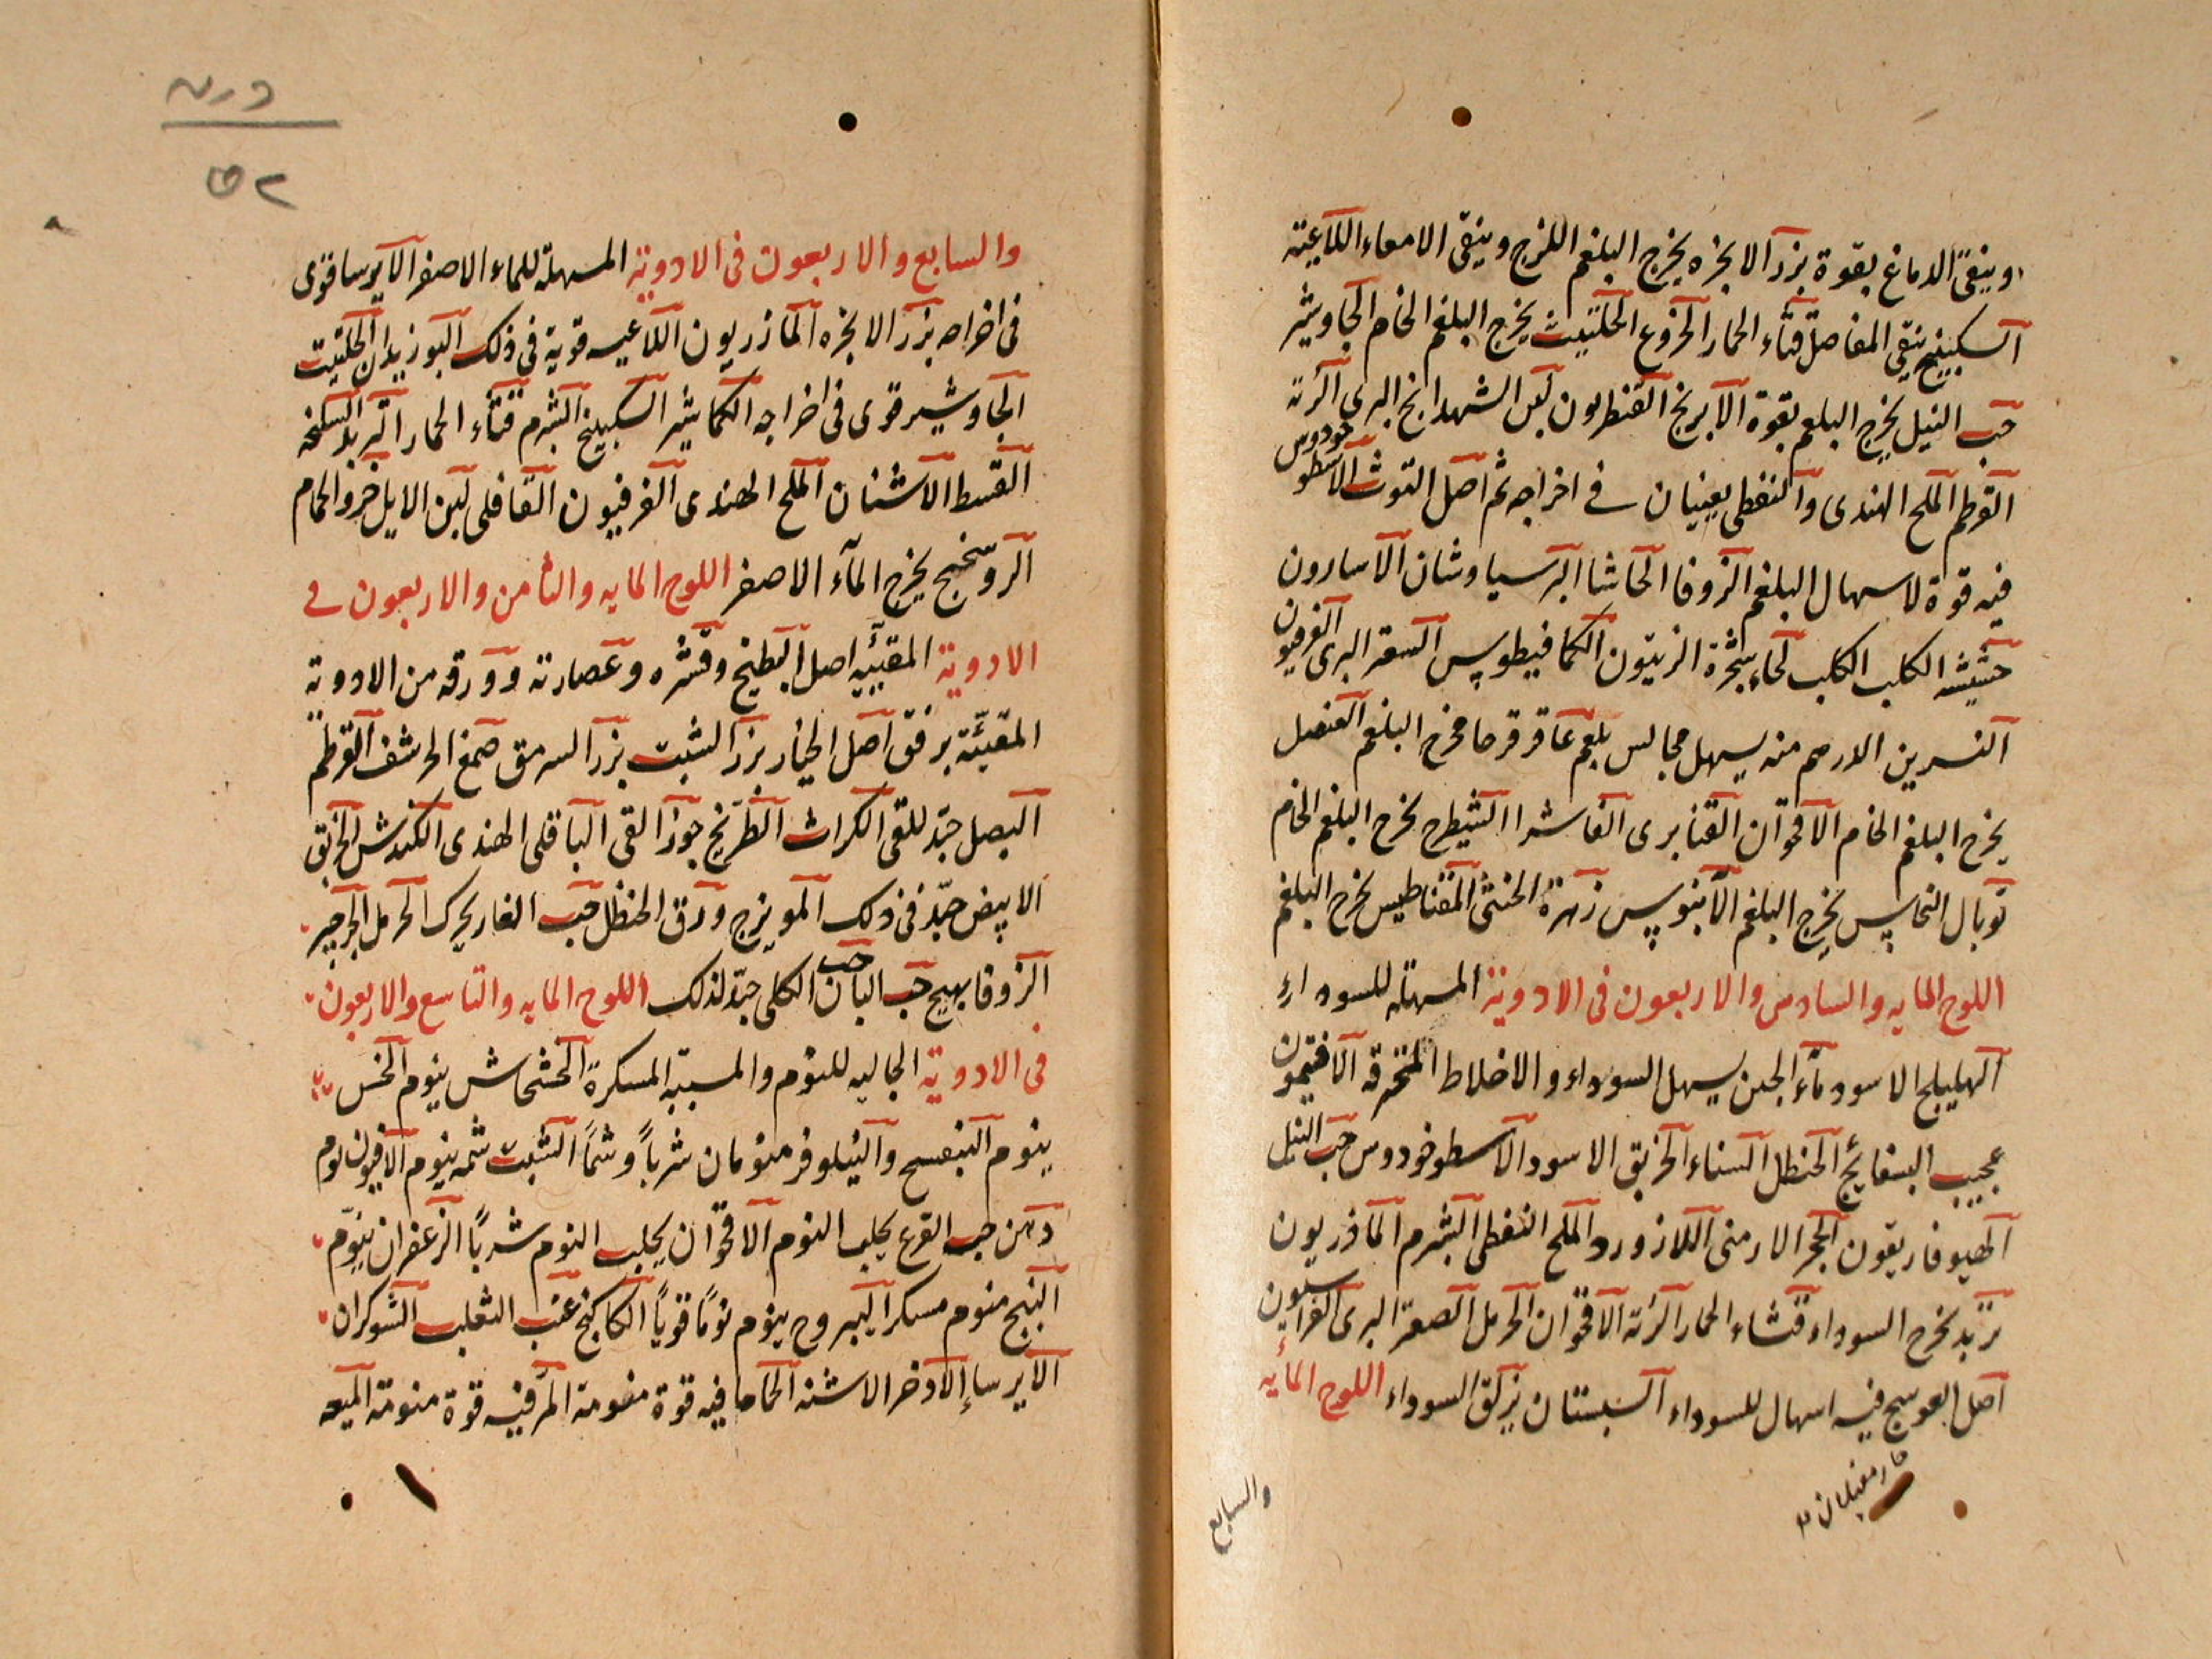 وينقى الدماغ بقوة بزر الانجره يخرج البلغم اللزج وينقى الامعاء اللاعية
السكبينج ينقى المفاصل قثاء الحمار الخروع الحلتيت يخرج البلغم الخام الجاوشير
حب النيل يخرج البلغم بقوة الابرنج القنطريون لبن الشهدانج البرى الرته
القرطم الملح الهندى والنفطى يعينان فى اخراجه ثم اصل التوث الاسطوخودوس
فيه قوة لاسهال البلغم الزوفا الحاشا البرسياوشان الاسارون
حشيشه الكلب الكلب لحاء شجرة الزيتون الكمافيطوس السعتر البرى الفرفيون
النسرين الدرهم منه يسهل مجالس بلغم عاقرقرحا مخرج البلغم العنصل
يخرج البلغم الخام الاقحوان القنابرى الفاشرا الشيطرج يخرج البلغم الخام
توبال النحاس يخرج البلغم الآبنوس زهرة الخنثى المغناطيس يخرج البلغم
اللوح المايه والسادس والاربعون فى الادوية المسهله للسوداء
الهليلج الاسود ماء الجبن يسهل السوداء والاخلاط المحترقه الافتيمون
عجيب البسفايج الحنظل السناء الخربق الاسود الاسطوخودوس حب النيل
الهيوفاريقون الحجر الارمنى اللازورد الملح النفطى الشبرم المازريون
تربد يخرج السوداء قثاء الحمار الرته الاقحوان الحرمل الصعتر البرى الفراسيون
اصل العوسج فيه اسهال للسوداء السبستان يزلق السوداء اللوح المايه
والسابع
والسابع والاربعون فى الادوية المسهلة للماء الاصفر الايرسا قوى
فى اخراجه بزر الانجره المازريون اللاعيه قوية فى ذلك البوزيدان الحلتيت
الجاوشير قوى فى اخراجه الكماشير السكبينج الشبرم قثاء الحمار التربد
القسط الاشنان الملح الهندى الفرفيون القاقلى لبن الايل خرو الحمام
الروسختج يخرج الماء الاصفر اللوح المايه والثامن والاربعون فى
الادوية المقيئيه اصل البطيخ وقشره وعصارته وورقه من الادوية
المقيئة برفق اصل الخيار بزر الشبت بزر السرمق صمغ الحرشف القرطم
البصل جيد للقى الكراث الطريخ جوز القى الباقلى الهندى الكندش الخربق
الابيض جيد فى ذلك المويزج ورق الحنظل حب الغار يحرك الحرمل الجرجير
الزوفا يهيج حب البان حب الكلى جيد لذلك اللوح المايه والتاسع والاربعون
فى الادوية الجالبه للنوم والمسبته المسكرة الخشخاش ينوم الخس
ينوم البنفسج والنيلوفر منومان شربا وشما الشبت شمه ينوم الافيون نوم
دهن حب القرع يجلب النوم الاقحوان يجلب النوم شربا الزعفران ينوم
البنج منوم مسكر اليبروح ينوم نوما قويا الكاكنج عنب الثعلب الشوكران
الايرسا الاذخر الاشنه الحماما فيه قوة منومة المر فيه قوة منومة الميعه